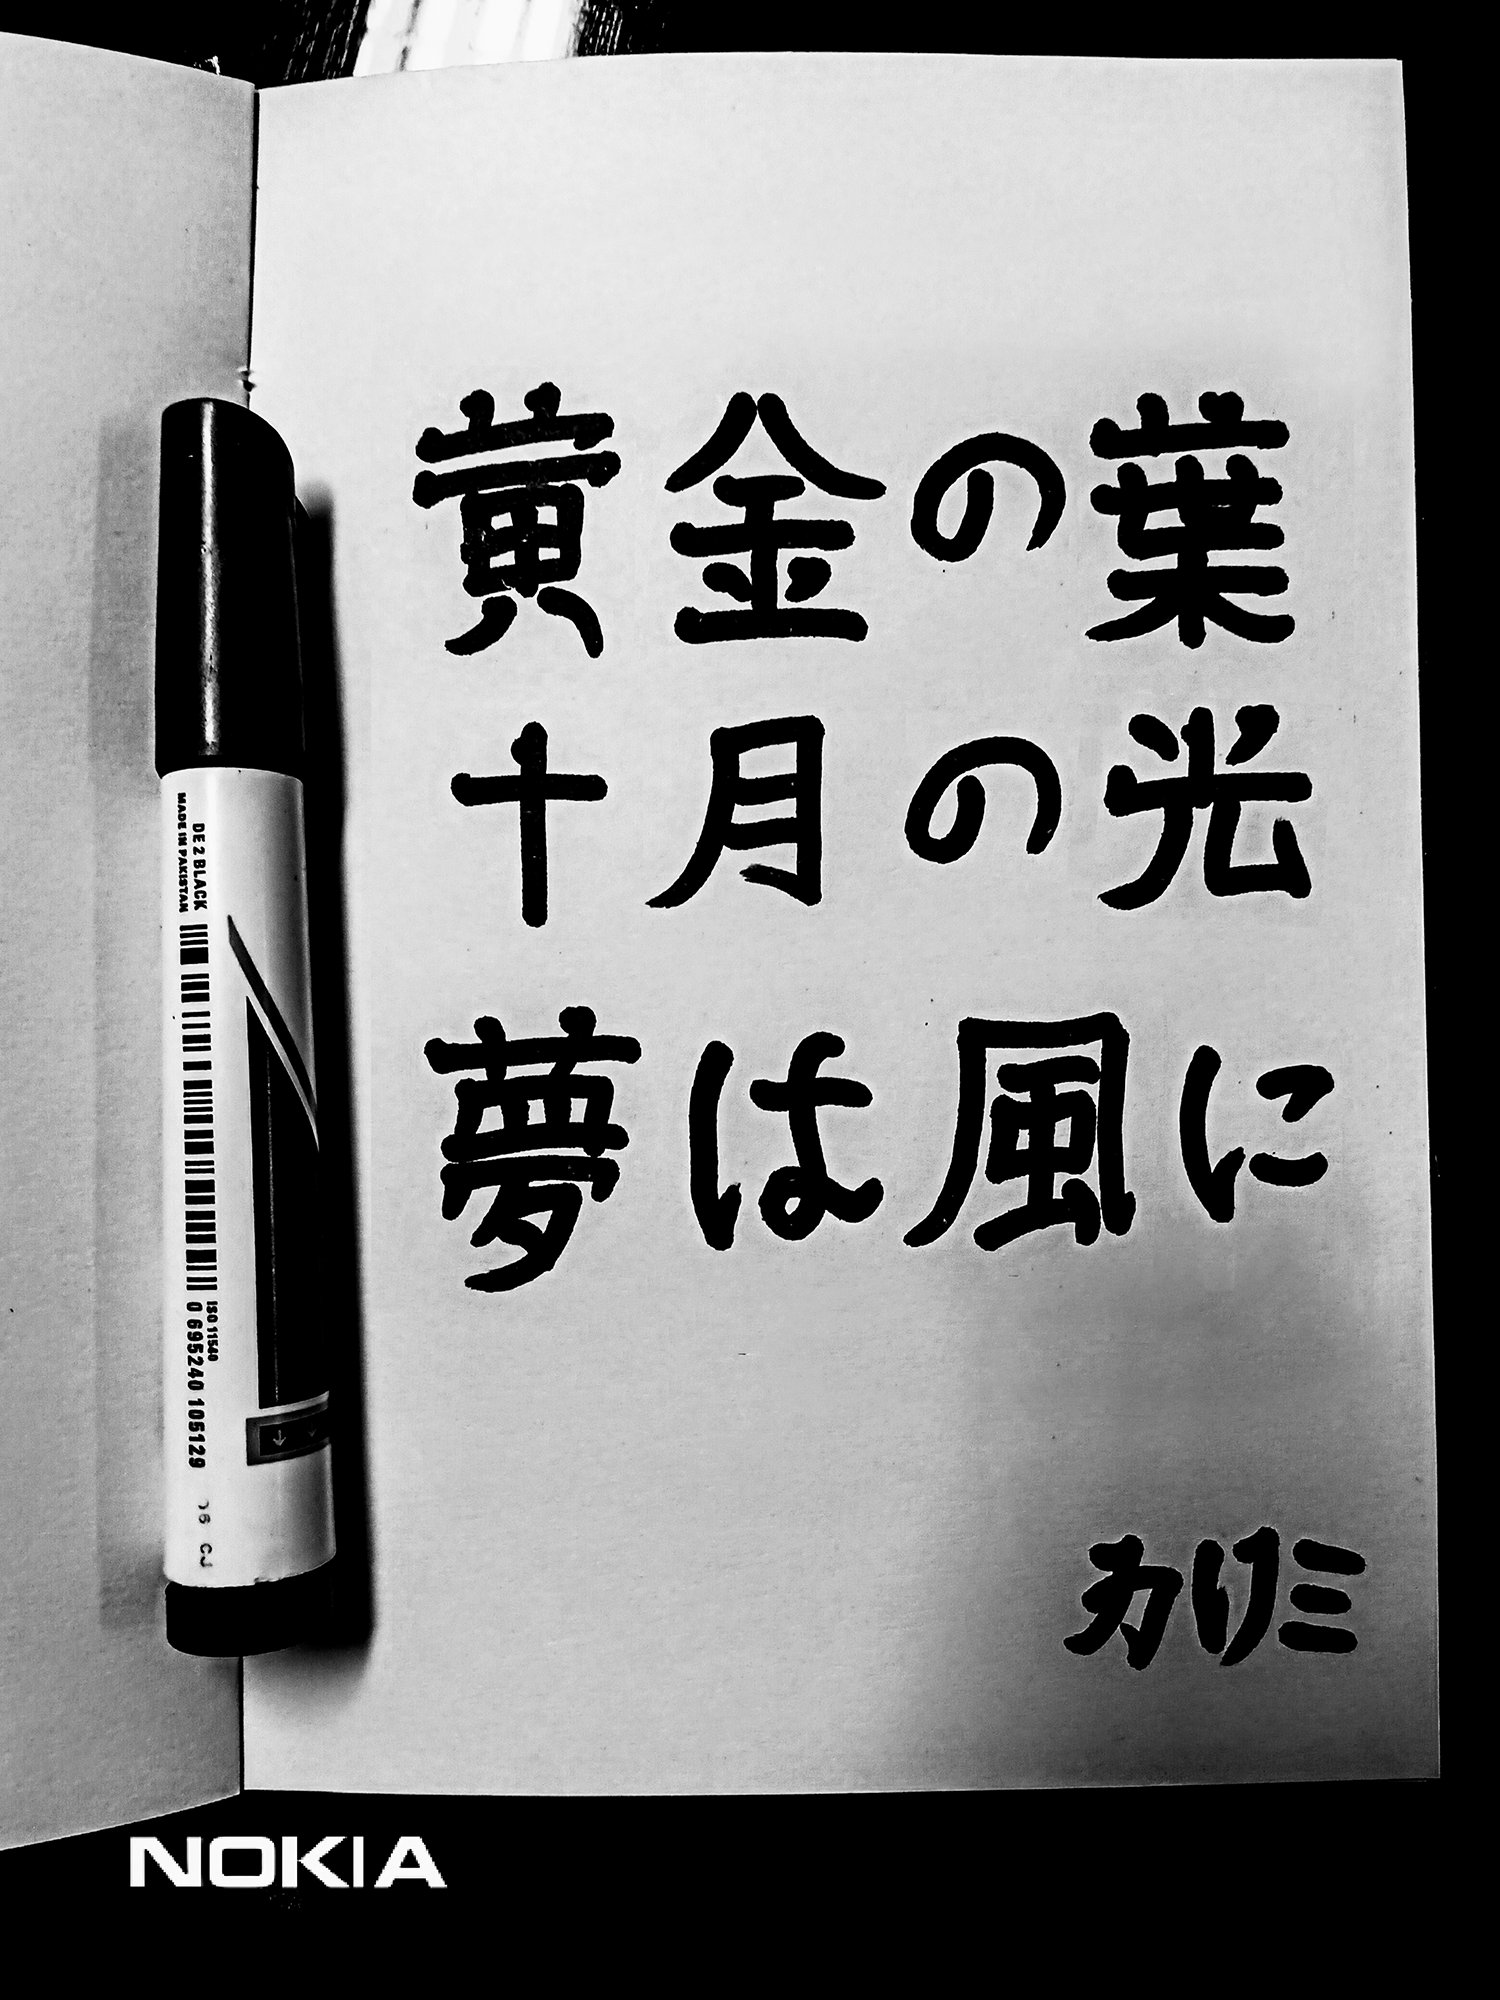 黄金の葉
十月の光
夢は風に
カリミ
DE 2 BLACK
MADE IN PAKISTAN
ISO 11540
0 695240 105129
NOKIA